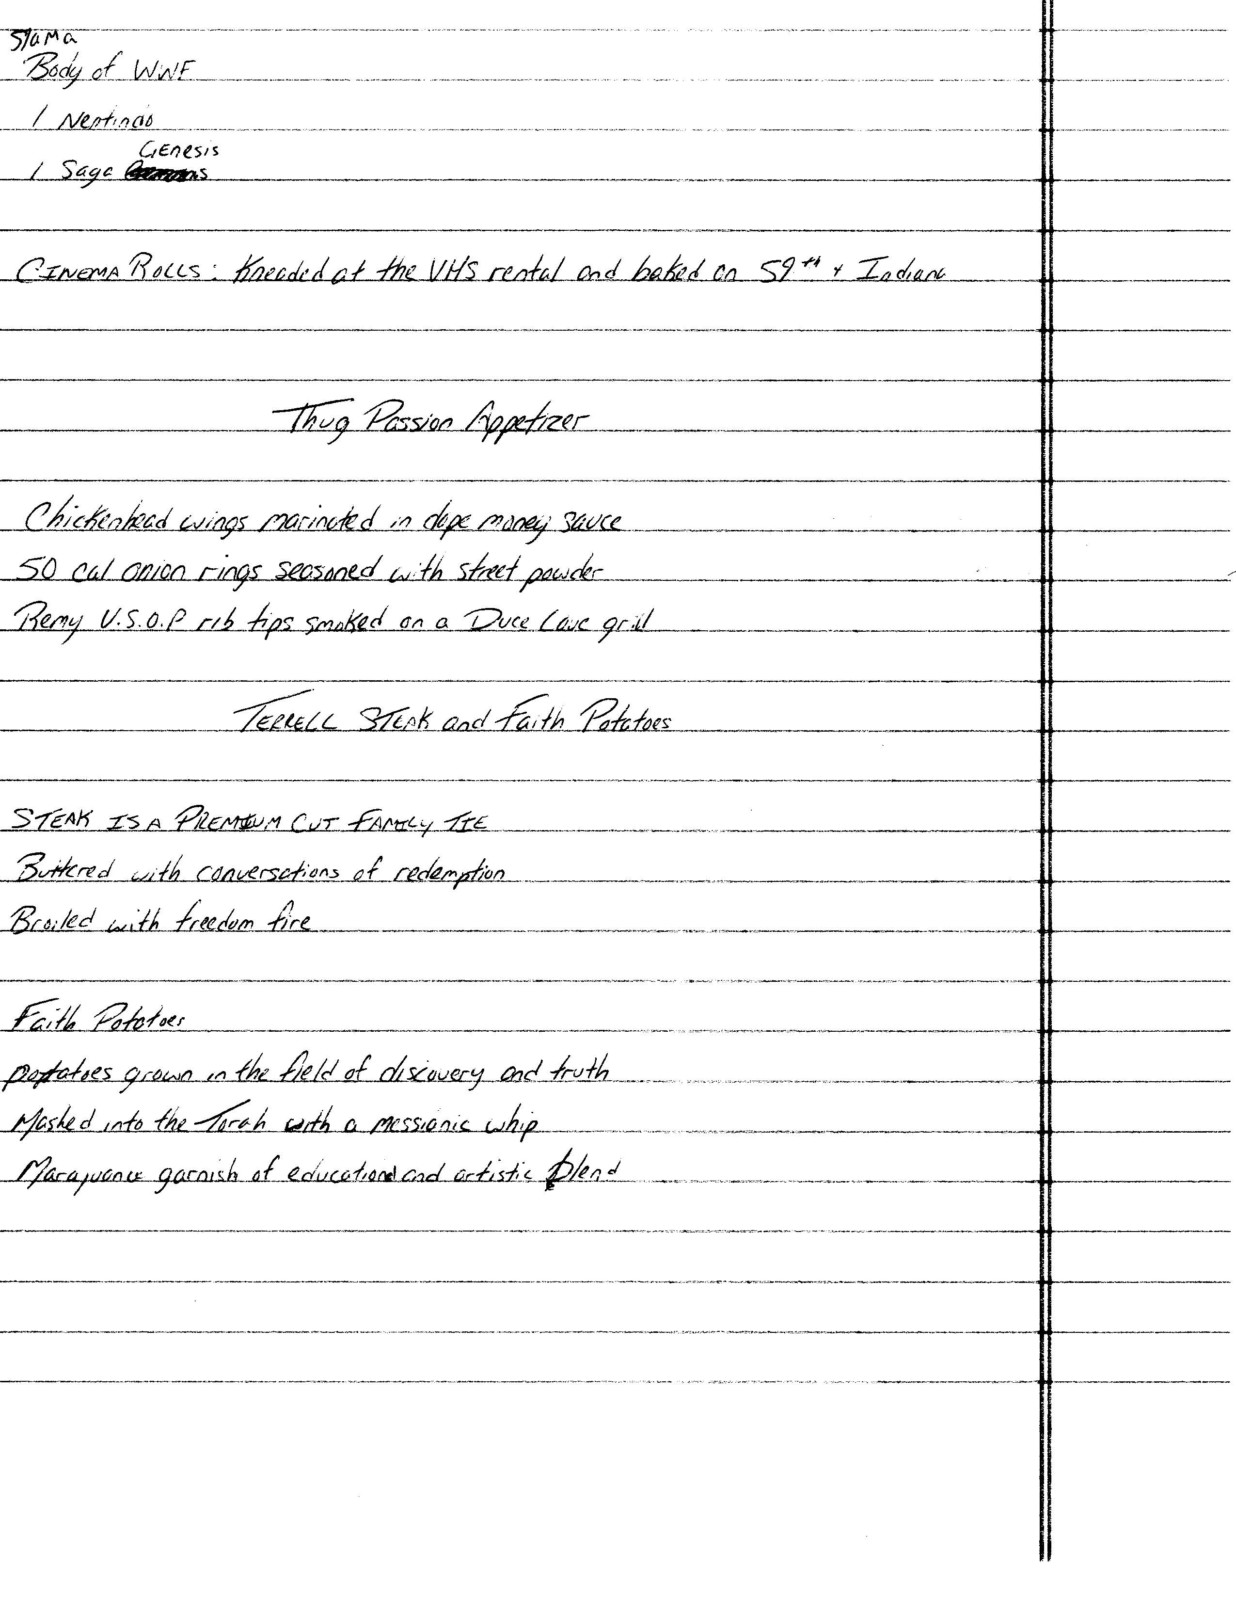 Slama
Body of WWF
1 Nentindo
Genesis
1 Saga
CINEMA ROLLS: Kneaded at the VHS rental and baked on 59th & Indiana
Thug Passion Appetizer
Chickenhead wings marinated in dope money sauce
50 cal onion rings seasoned with street powder
Remy V.S.O.P rib tips smoked on a Duce Love grill
TERRELL STEAK and Faith Potatoes
STEAK IS A PREMIUM CUT FAMILY TIE
Buttered with conversations of redemption
Broiled with freedom fire
Faith Potatoes
potatoes grown in the field of discovery and truth
Mashed into the Torah with a messianic whip
Marajuana garnish of education and artistic blend